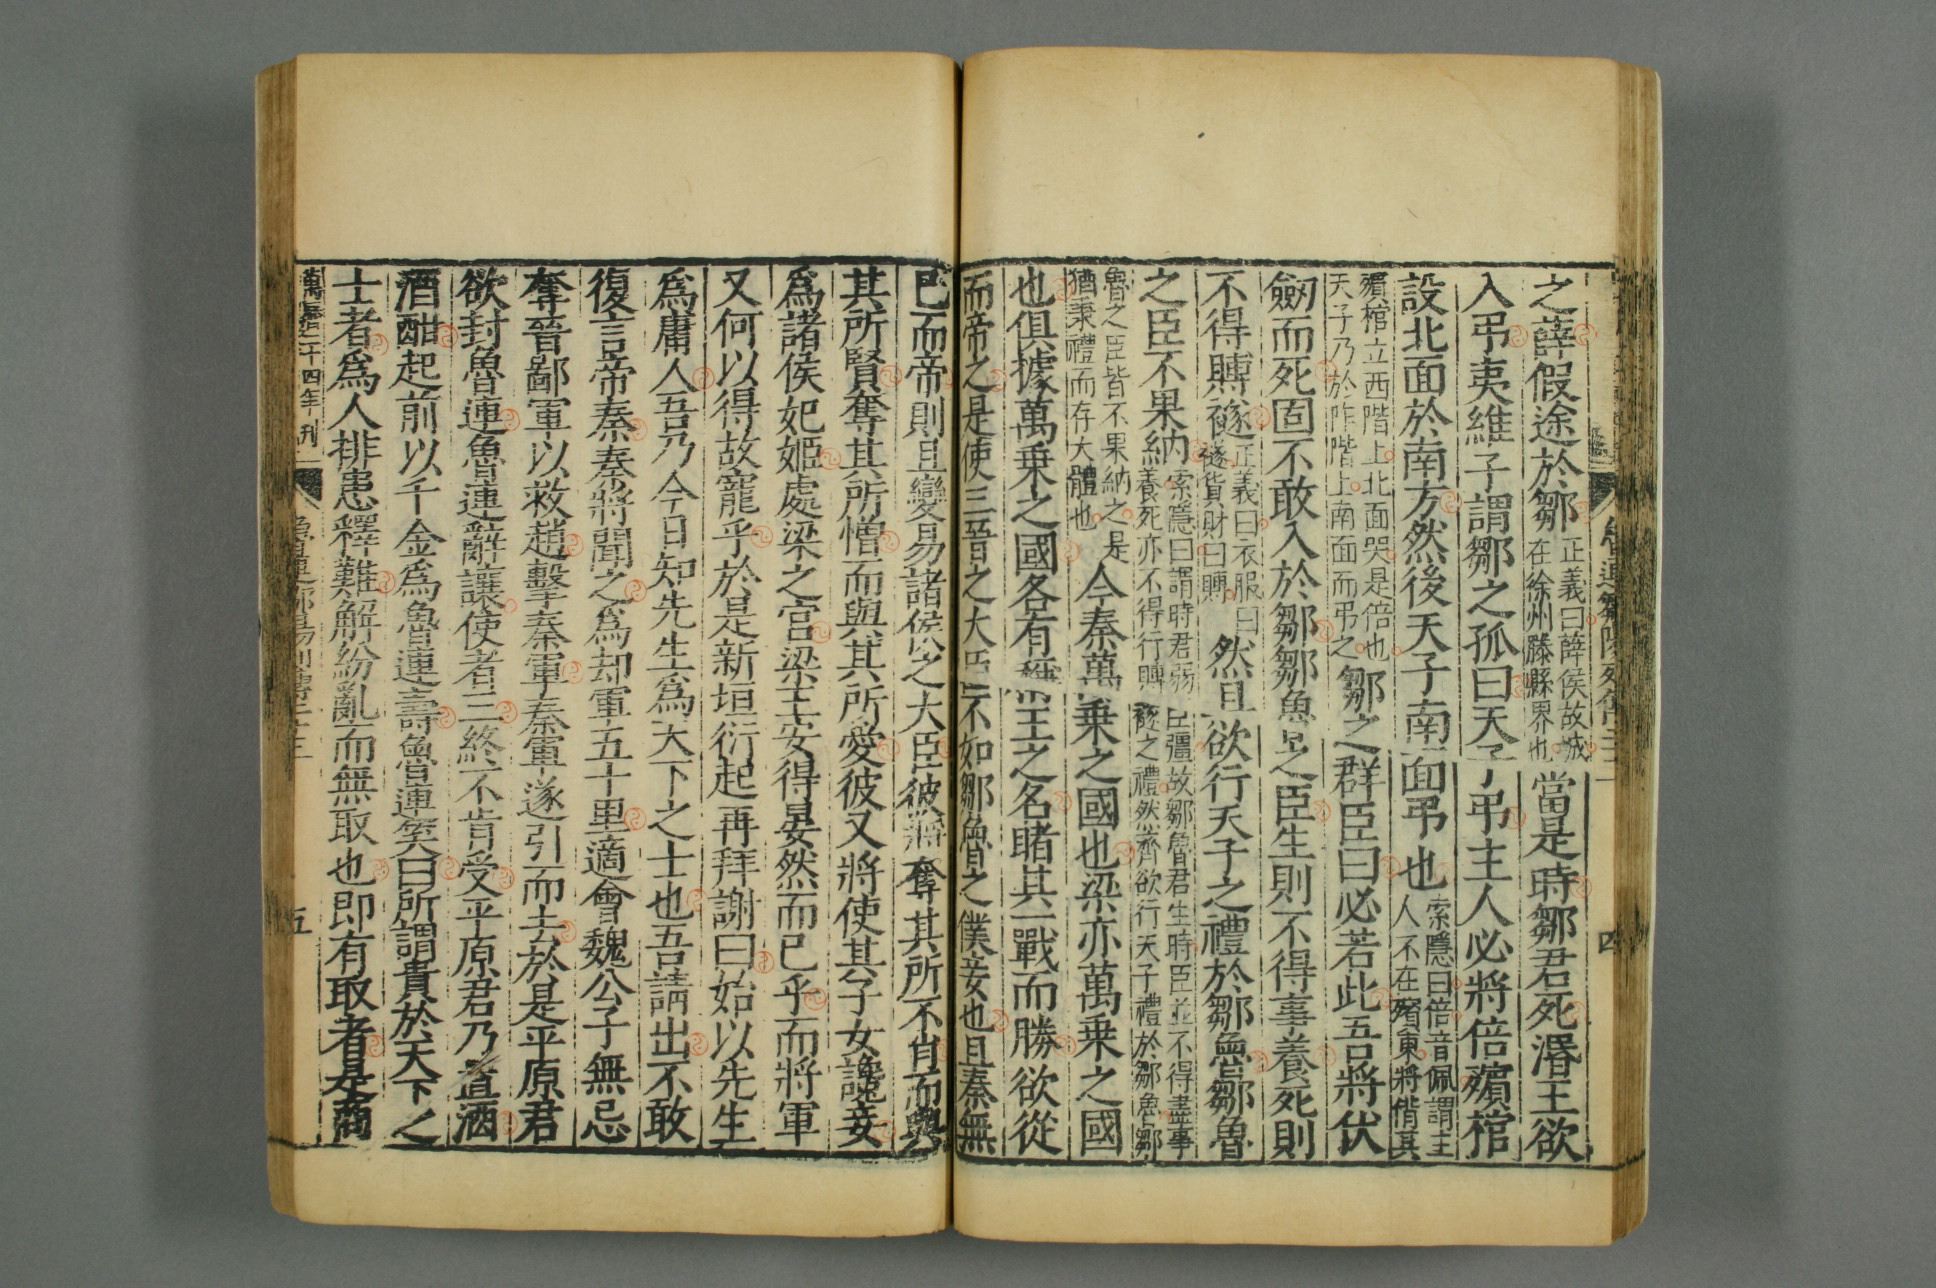 之薛假途於鄒正義曰薛侯故城在徐州滕縣界也當是時鄒君死湣王欲
入弔夷維子謂鄒之孤曰天子弔主人必將倍殯棺
設北面於南方然後天子南面弔也索隱曰倍音佩謂主人不在殯東將偝其
殯棺立西階上北面哭是倍也天子乃於阼階上南面而弔之鄒之群臣曰必若此吾將伏
劒而死固不敢入於鄒鄒魯之臣生則不得事養死則
不得賻襚正義曰衣服曰襚貨財曰賻然且欲行天子之禮於鄒魯鄒魯
之臣不果納索隱曰謂時君弱臣彊故鄒魯君生時臣並不得盡事養死亦不得行賻襚之禮然齊欲行天子禮於鄒魯鄒
魯之臣皆不果納之是猶秉禮而存大體也今秦萬乗之國也梁亦萬乗之國
也俱據萬乗之國各有稱王之名睹其一戰而勝欲從
而帝之是使三晉之大臣不如鄒魯之僕妾也且秦無
已而帝則且變易諸侯之大臣彼將奪其所不肖而與
其所賢奪其所憎而與其所愛彼又將使其子女讒妾
爲諸侯妃姬處梁之宮梁王安得晏然而已乎而將軍
又何以得故寵乎於是新垣衍起再拜謝曰始以先生
爲庸人吾乃今日知先生爲天下之士也吾請出不敢
復言帝秦秦將聞之爲却軍五十里適會魏公子無忌
奪晉鄙軍以救趙擊秦軍秦軍遂引而去於是平原君
欲封魯連魯連辭讓使者三終不肯受平原君乃置酒
酒酣起前以千金爲魯連壽魯連笑曰所謂貴於天下之
士者爲人排患釋難解紛亂而無取也即有取者是商
萬曆二十四年刊 魯連鄒陽列傳二十三 五